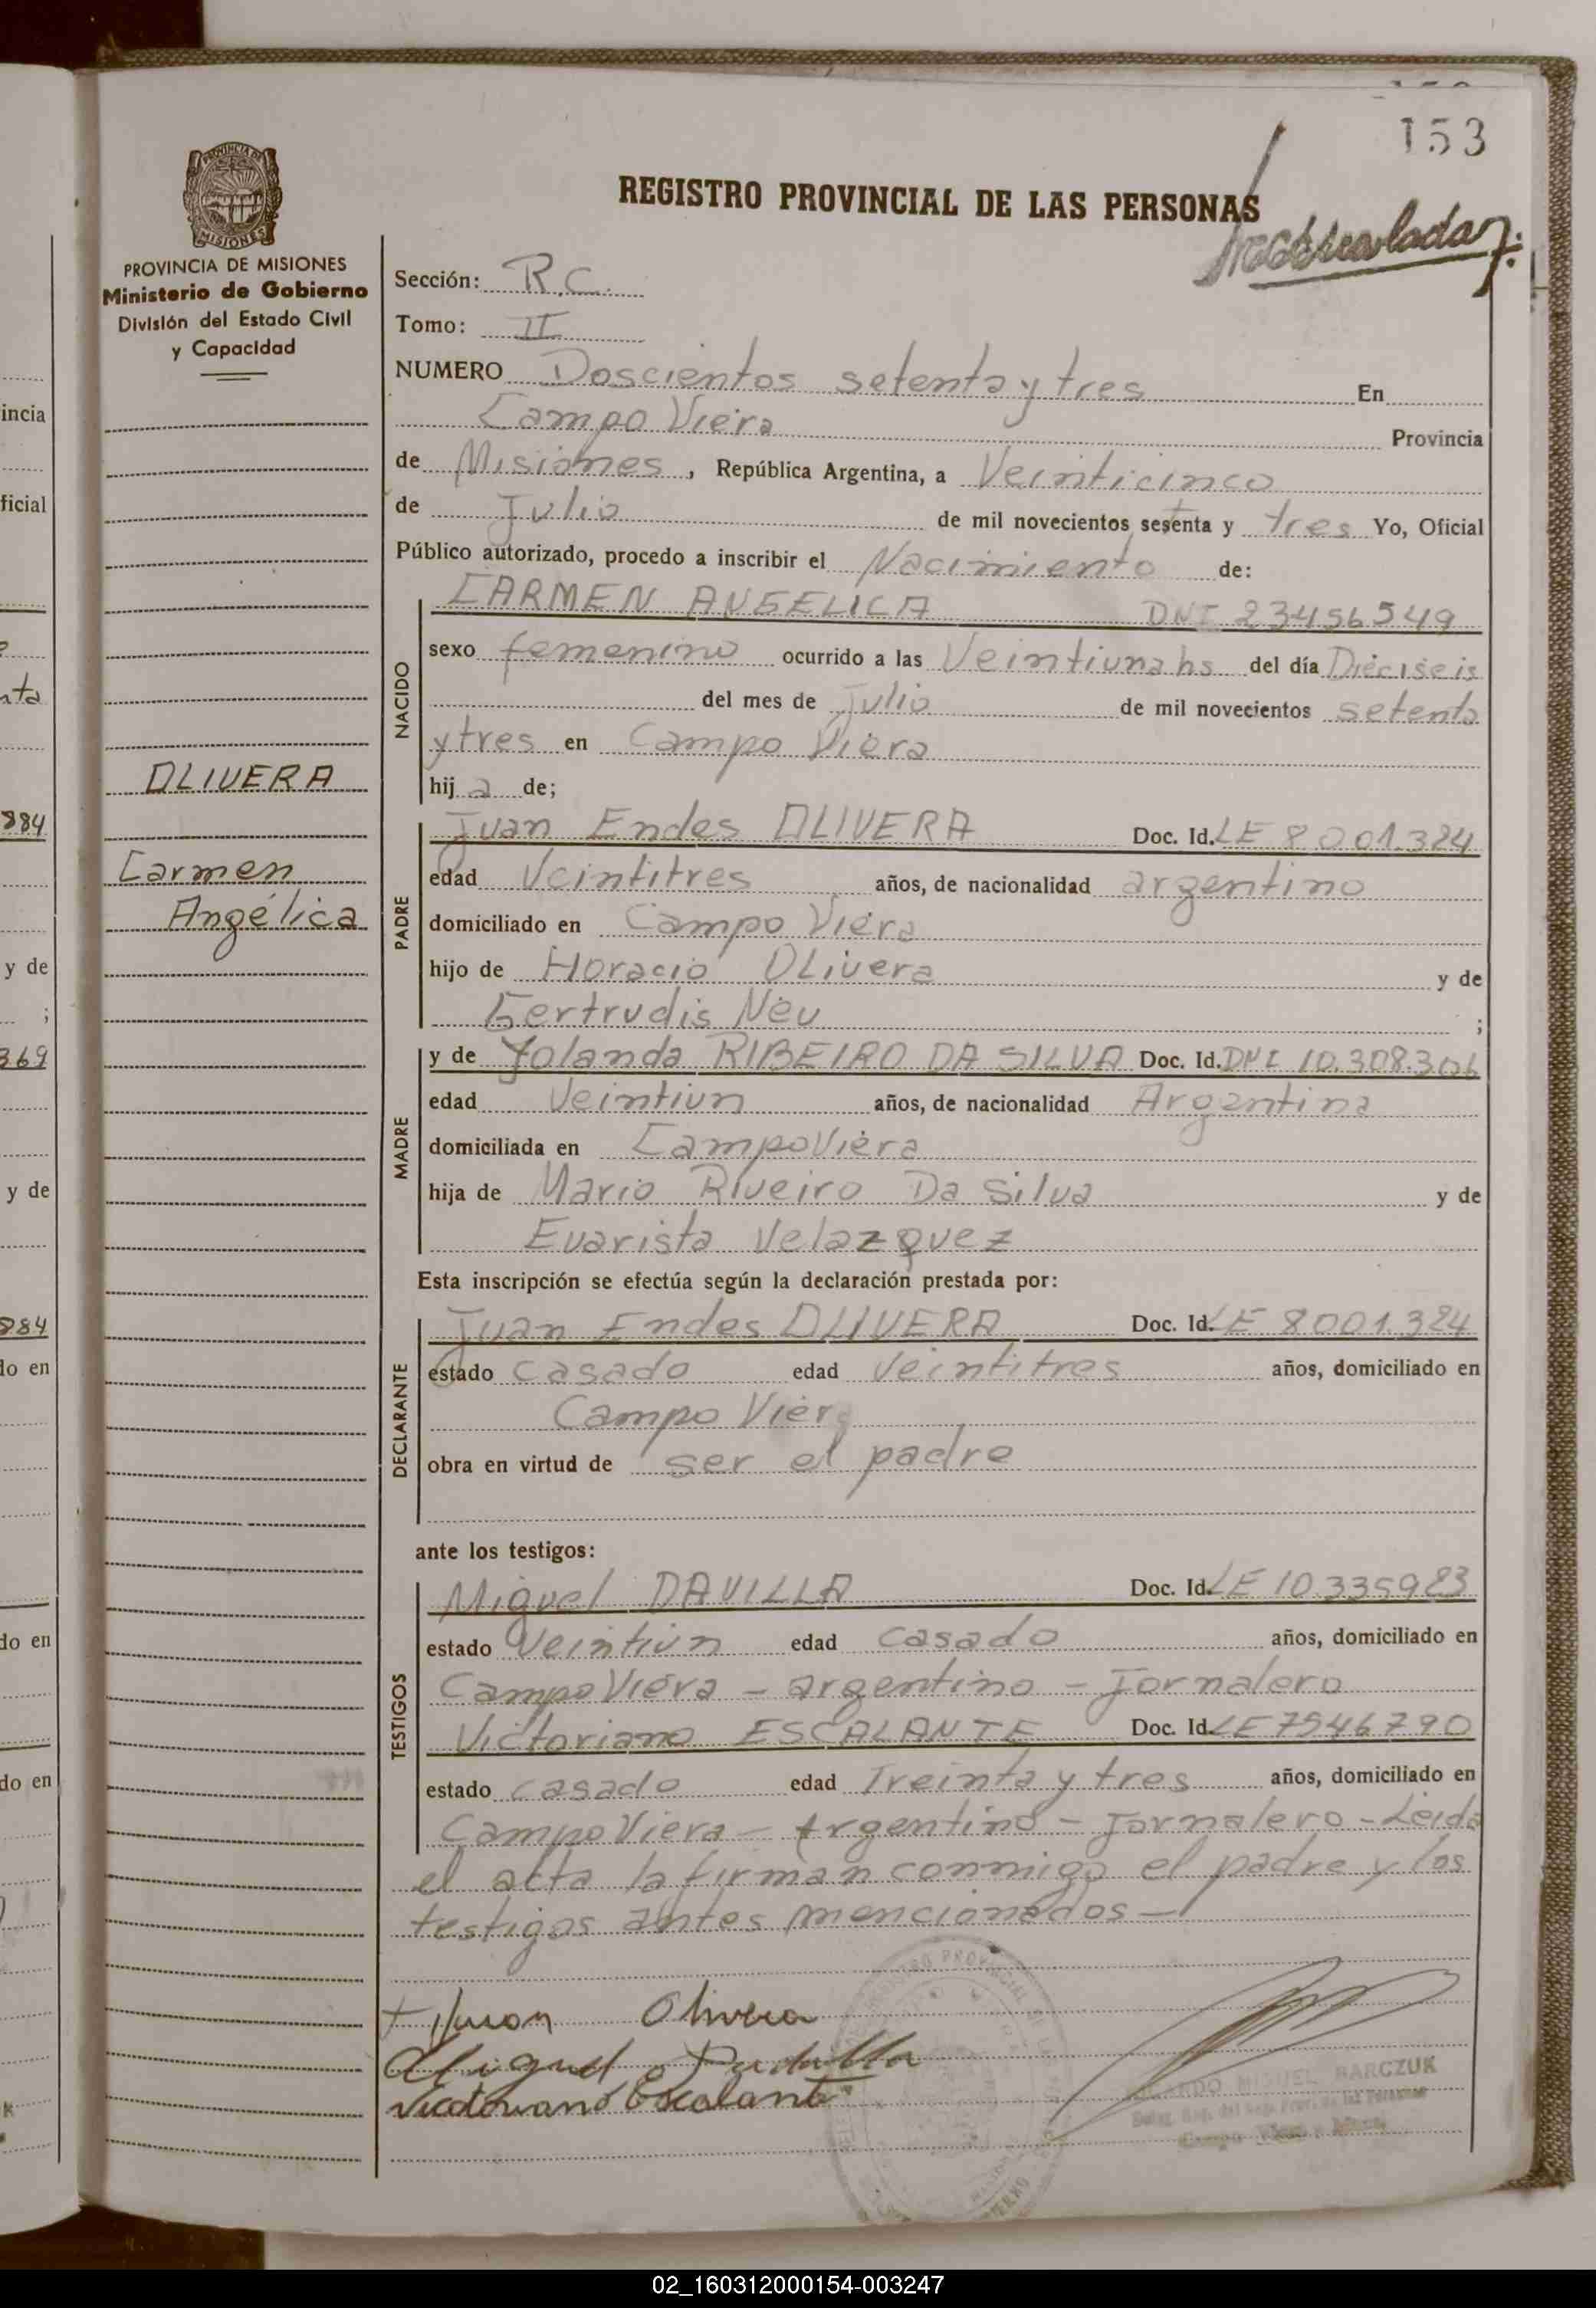 153
REGISTRO PROVINCIAL DE LAS PERSONAS
PROVINCIA DE MISIONES
Ministerio de Gobierno
División del Estado Civil
y Capacidad
OLIVERA
Carmen
Angélica
Sección: R.C.
Tomo: II
NUMERO Doscientos setenta y tres En
Campo Viera Provincia
de Misiones, República Argentina, a Veinticinco
de Julio de mil novecientos setenta y tres Yo, Oficial
Público autorizado, procedo a inscribir el Nacimiento de:
CARMEN ANGELICA DNI 23456549
NACIDO
sexo femenino ocurrido a las Veintiuna hs del día Dieciseis
del mes de Julio de mil novecientos setenta
y tres en Campo Viera
hija de;
PADRE
Juan Endes OLIVERA Doc. Id. LE 8001.324
edad Veintitres años, de nacionalidad argentino
domiciliado en Campo Viera
hijo de Horacio Olivera y de
Gertrudis Neu ;
MADRE
y de Yolanda RIBEIRO DA SILVA Doc. Id. DNI 10.308.306
edad Veintiun años, de nacionalidad Argentina
domiciliada en Campo Viera
hija de Mario Riveiro Da Silva y de
Evarista Velazquez
Esta inscripción se efectúa según la declaración prestada por:
DECLARANTE
Juan Endes OLIVERA Doc. Id. LE 8001.324
estado casado edad Veintitres años, domiciliado en
Campo Viera
obra en virtud de ser el padre
ante los testigos:
TESTIGOS
Miguel DAVILLA Doc. Id. LE 10.335983
estado Veintiun edad casado años, domiciliado en
Campo Viera - argentino - Jornalero
Victoriano ESCALANTE Doc. Id. LE 7546790
estado casado edad Treinta y tres años, domiciliado en
Campo Viera - Argentino - Jornalero - Leida
el acta la firman conmigo el padre y los
testigos antes mencionados -
Juan Olivera
Miguel
Victoriano Escalante
MIGUEL BARCZUK
02_160312000154-003247